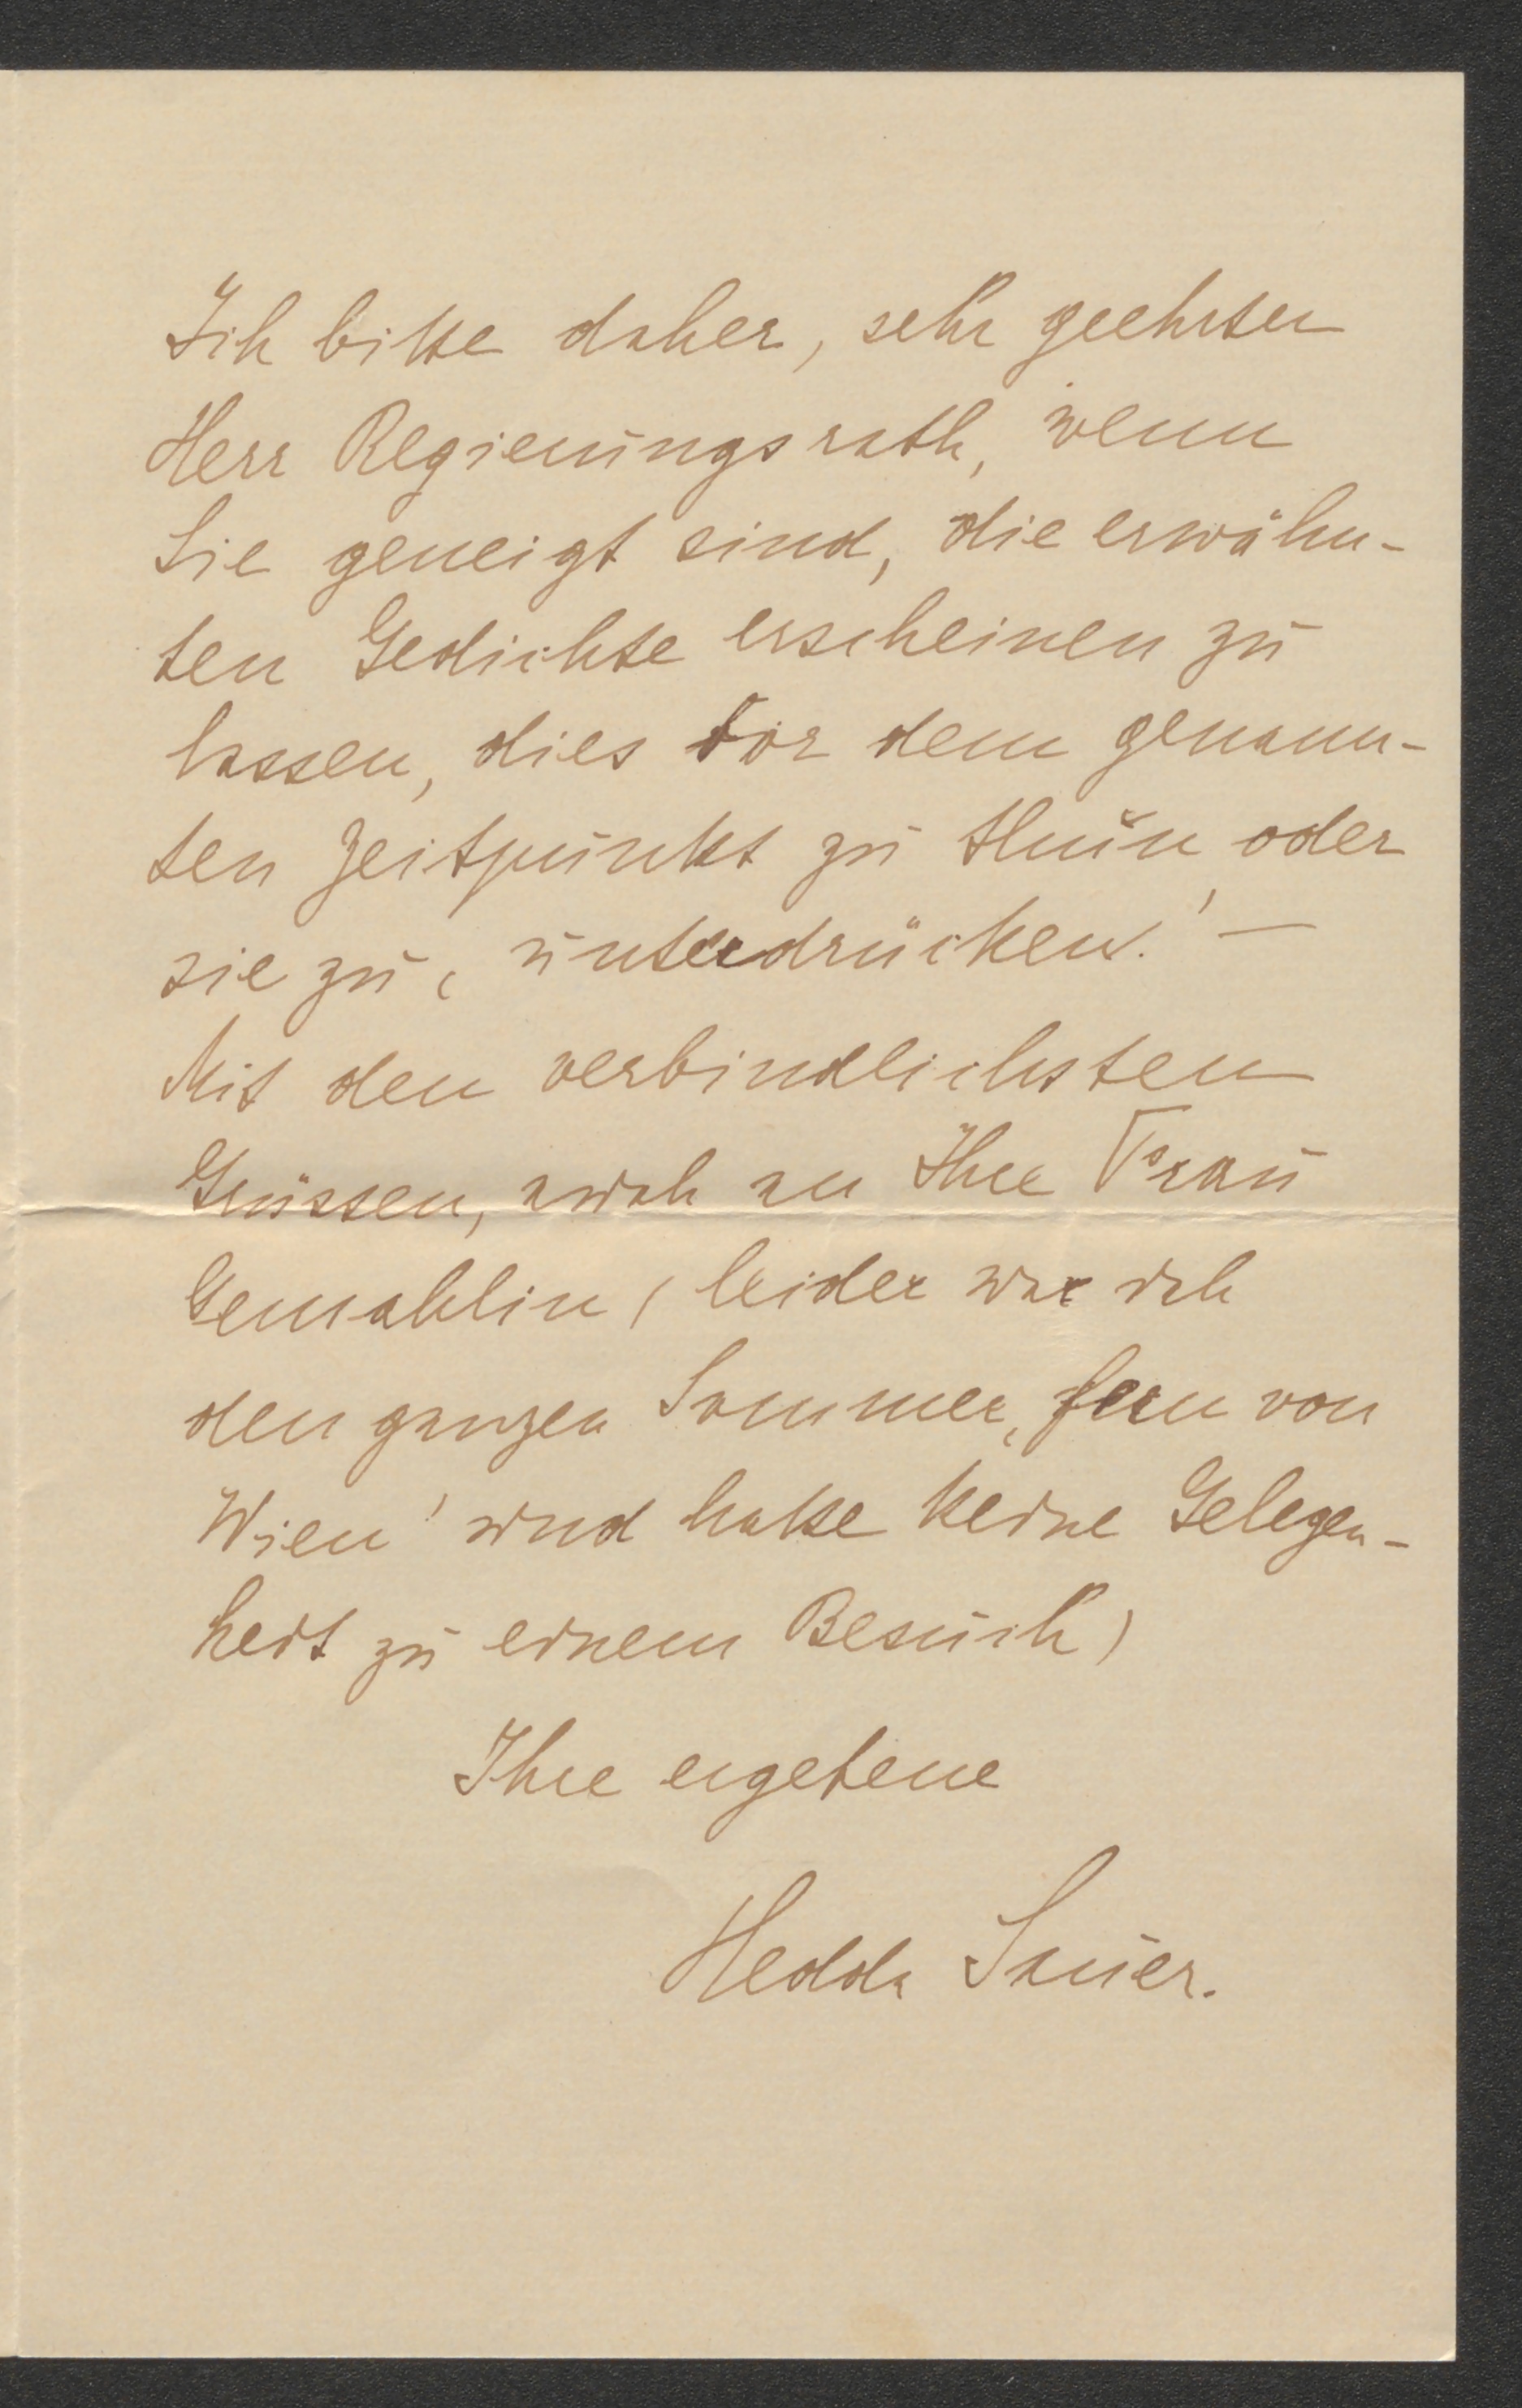 Ich bitte daher, sehr geehrter
Herr Regierungsrath, wenn
Sie geneigt sind, die erwähn-
ten Gedichte erscheinen zu
lassen, dies vor dem genann-
ten Zeitpunkt zu thun, oder
sie zu, unterdrücken! –
Mit den verbindlichsten
Grüssen, auch an Ihre Frau
Gemahlin (leider war ich
den ganzen Sommer, fern von
Wien und hatte keine Gelegen-
heit zu einem Besuch)
Ihre ergebene
Hedda Sauer.